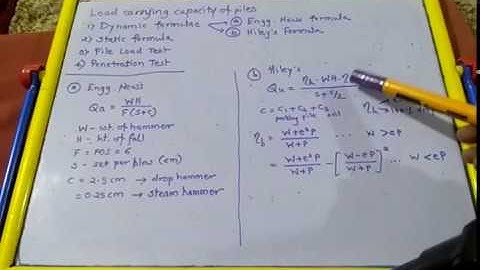 Load carrying capacity of piles
1) Dynamic formulae
a Engg. News formula
b Hiley's Formula
2) Static formula
3) Pile Load Test
4) Penetration Test
a Engg. News
Qa = WH / F(S+C)
W - wt. of hammer
H - ht. of fall
F = FOS = 6
S - set per blow (cm)
C = 2.5 cm → drop hammer
= 0.25 cm → steam hammer
b Hiley's
Qu = ηh · WH · η / S + C/2
C = C1 + C2 + C3
ηb = W+e²P / W+P ... W > eP
= W+e²P / W+P - [W-eP / W+P]² ... W < eP